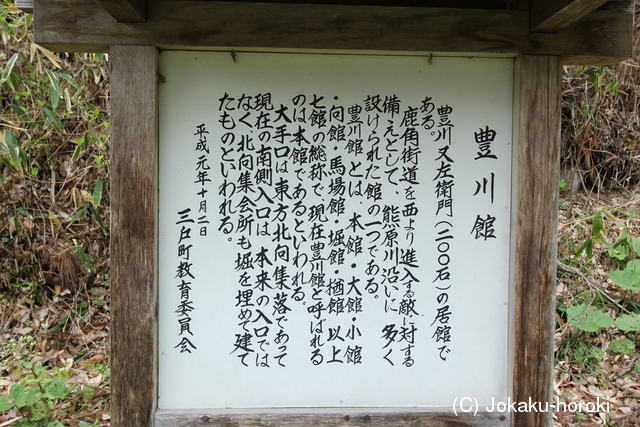 豊川館
豊川又左衛門(二〇〇石)の居館で
ある。
鹿角街道を西より進入する敵に対する
備えとして、熊原川沿いに多く
設けられた館の一つである。
豊川館とは、本館・大館・小館
・向館・馬場館・堀館・楢館以上
七館の総称で現在豊川館と呼ばれる
のは本館であるといわれる。
大手口は東方北向集落であって
現在の南側入口は、本来の入口では
なく、北向集会所も堀を埋めて建て
たものといわれる。
平成元年十月二日
三戸町教育委員会
(C) Jokaku-horoki